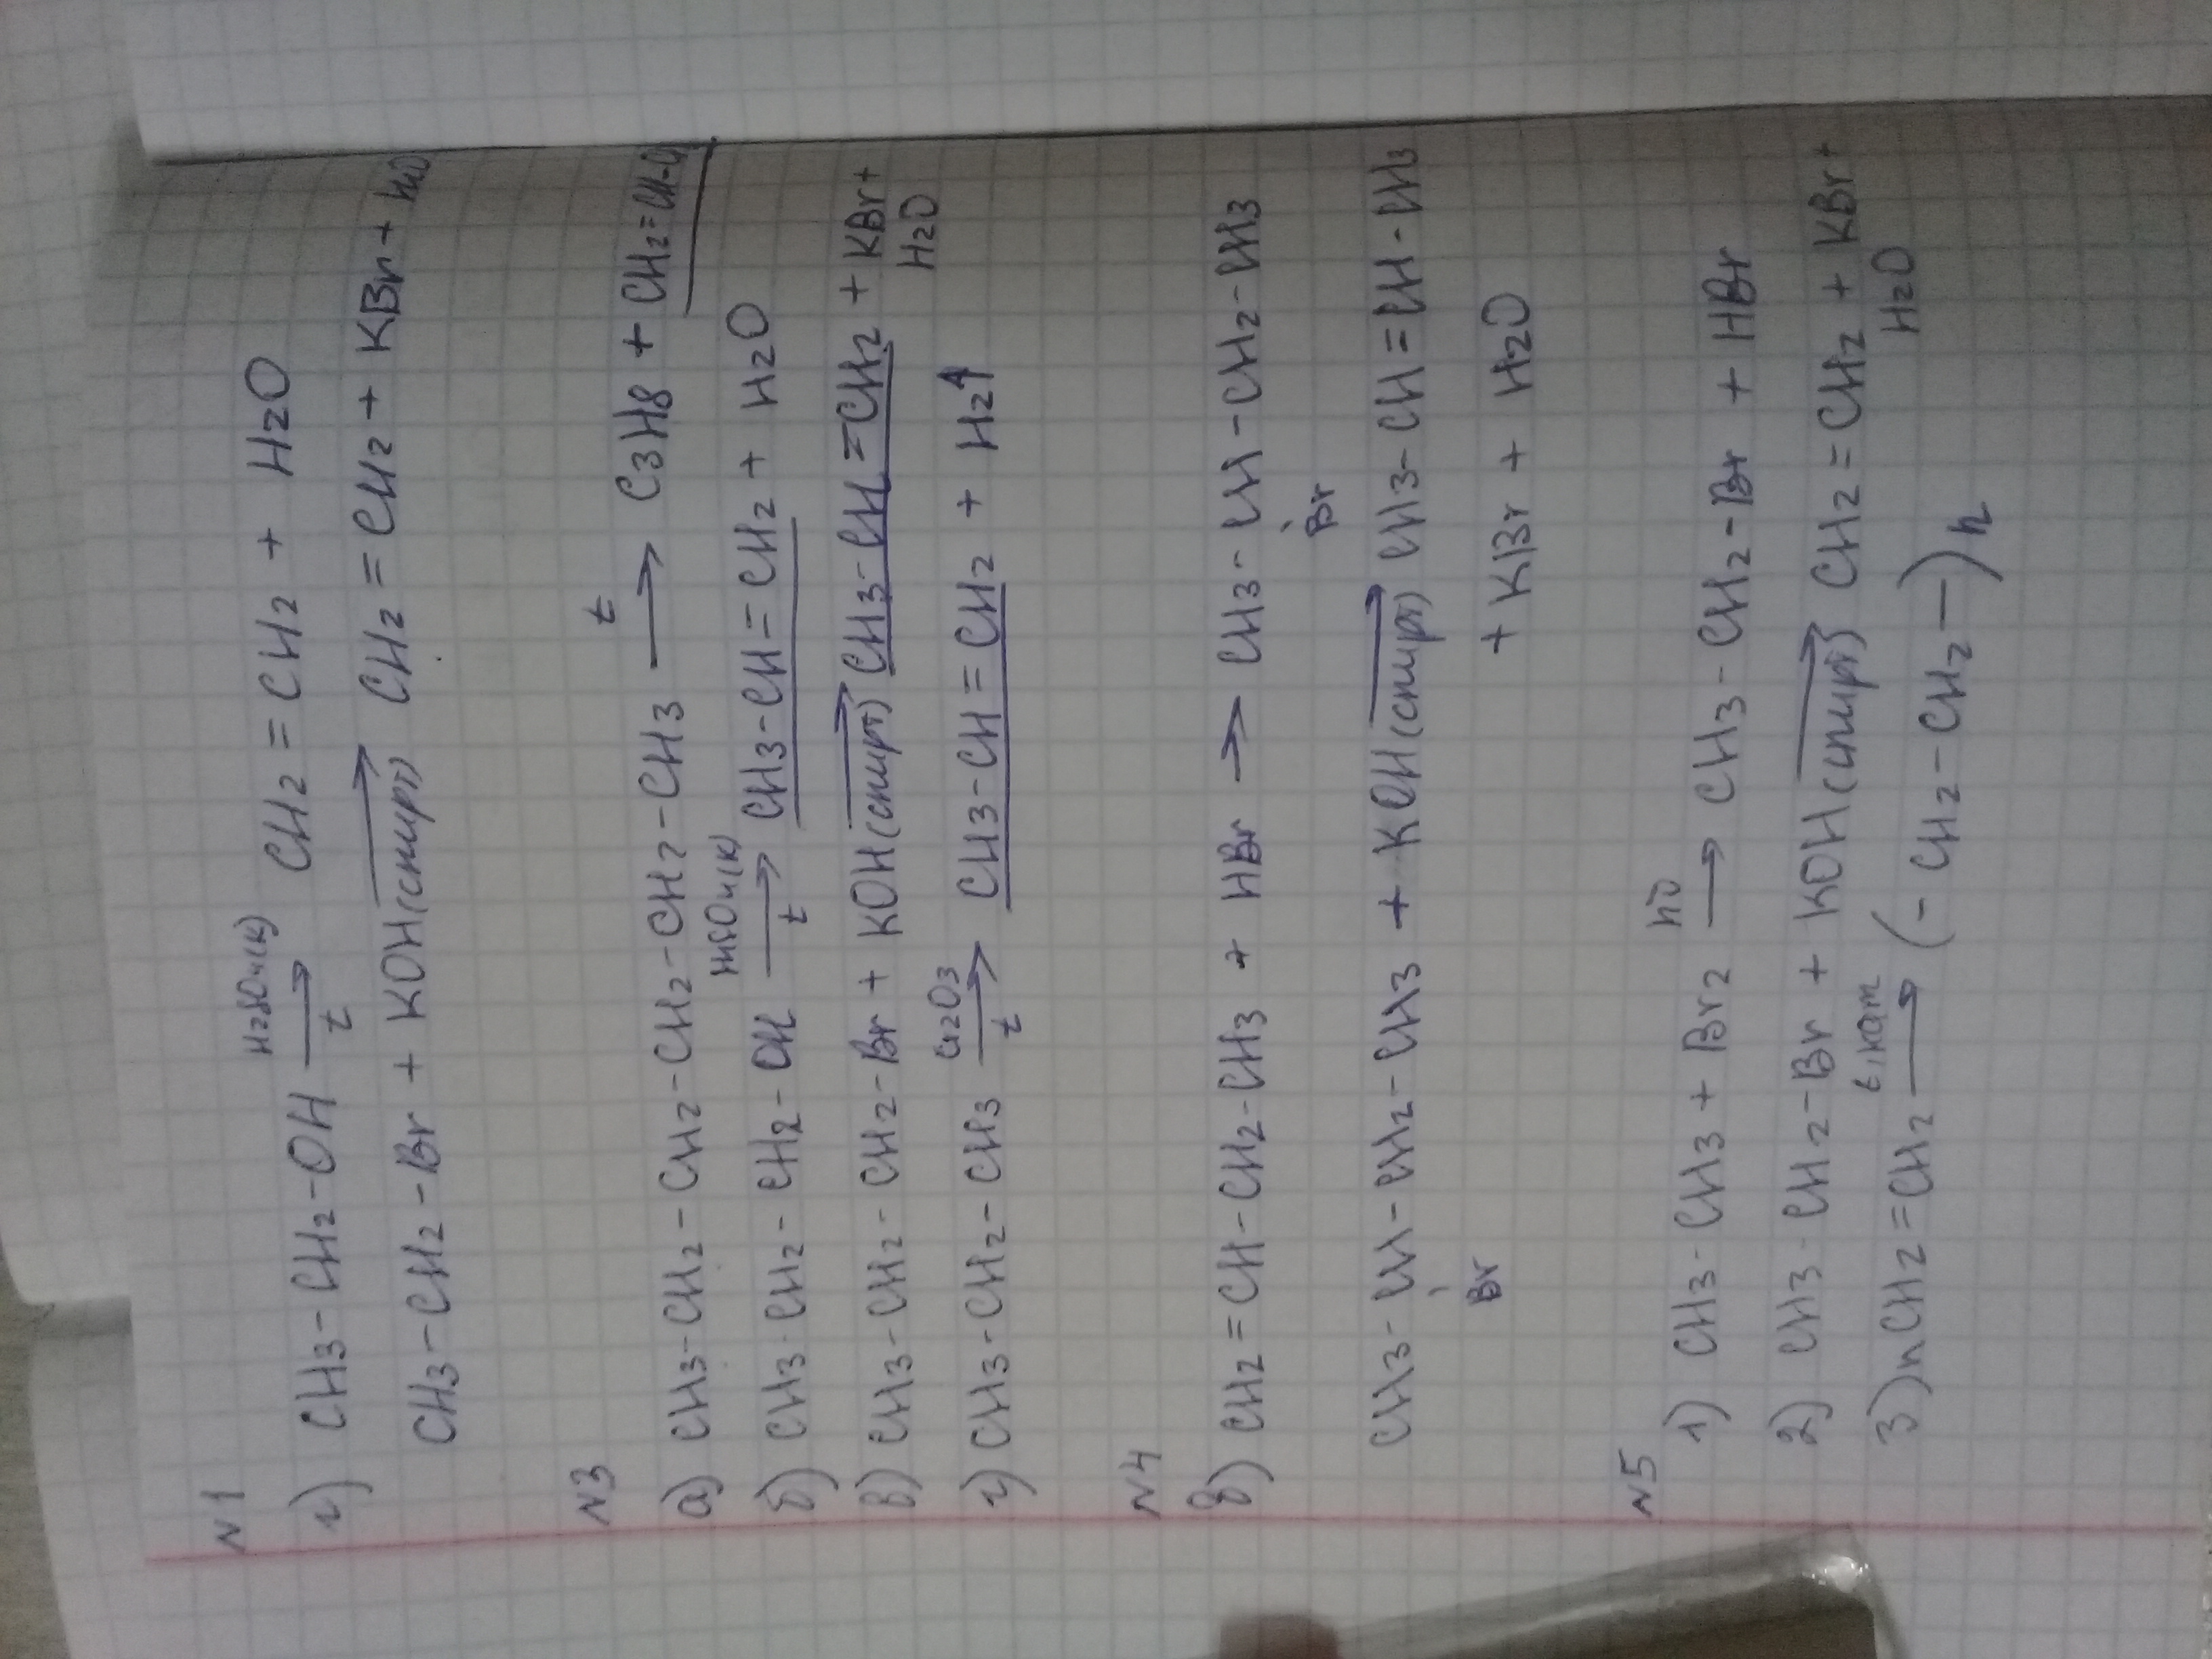 N1
г) CH3-CH2-OH H2SO4(к) → t CH2=CH2 + H2O
CH3-CH2-Br + KOH(спирт) → CH2=CH2 + KBr + H2O
N3
а) CH3-CH2-CH2-CH2-CH2-CH3 t → C3H8 + CH2=CH-
б) CH3-CH2-CH2-OH H2SO4(к) → t CH3-CH=CH2 + H2O
в) CH3-CH2-CH2-Br + KOH(спирт) → CH3-CH=CH2 + KBr+
H2O
г) CH3-CH2-CH3 Cr2O3 → t CH3-CH=CH2 + H2↑
N4
в) CH2=CH-CH2-CH3 + HBr → CH3-CH-CH2-CH3
Br
CH3-CH-CH2-CH3 + KOH(спирт) → CH3-CH=CH-CH3
Br
+ KBr + H2O
N5
1) CH3-CH3 + Br2 hν → CH3-CH2-Br + HBr
2) CH3-CH2-Br + KOH(спирт) → CH2=CH2 + KBr+
H2O
3) nCH2=CH2 t,кат → (-CH2-CH2-)n